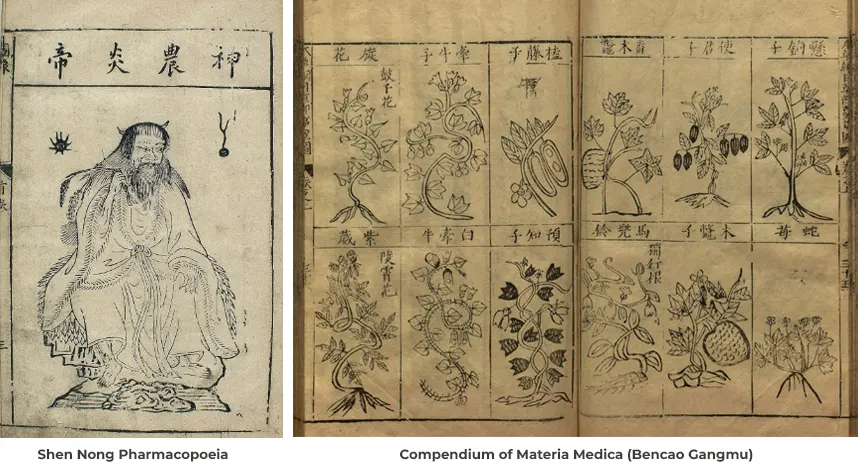 神農炎帝
懸鈎子
使君子
番木鼈
蛇苺
木鼈子
馬兜鈴
榼藤子
牽牛子
旋花
鼓子花
預知子
白牽牛
紫葳
陵霄花
Shen Nong Pharmacopoeia
Compendium of Materia Medica (Bencao Gangmu)